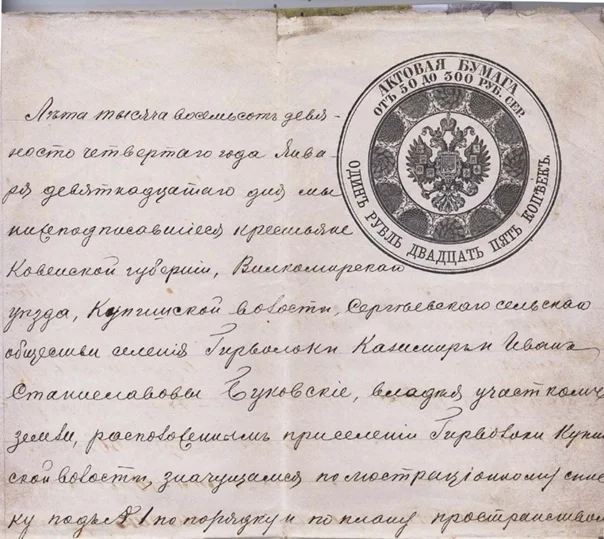 АКТОВАЯ БУМАГА
ОТЪ 50 ДО 300 РУБ. СЕР.
ОДИНЪ РУБЛЬ ДВАДЦАТЬ ПЯТЬ КОПѢЕКЪ.
Лѣта тысяча восемьсотъ девя-
носто четвертаго года Янва-
ря девятнадцатаго дня мы
нижеподписавшіеся крестьяне
Ковенской губерніи, Вилкомирскаго
уѣзда, Купишской волости, Сергѣевскаго сельскаго
общества селенія Гирволоки Казимиръ и Иванъ
Станиславовы Буковскіе, владѣя участкомъ
земли, расположеннымъ при селеніи Гирволоки Купиш
ской волости, значущимся по люстраціонному спис
ку подъ № 1 по порядку и по плану пространствомъ